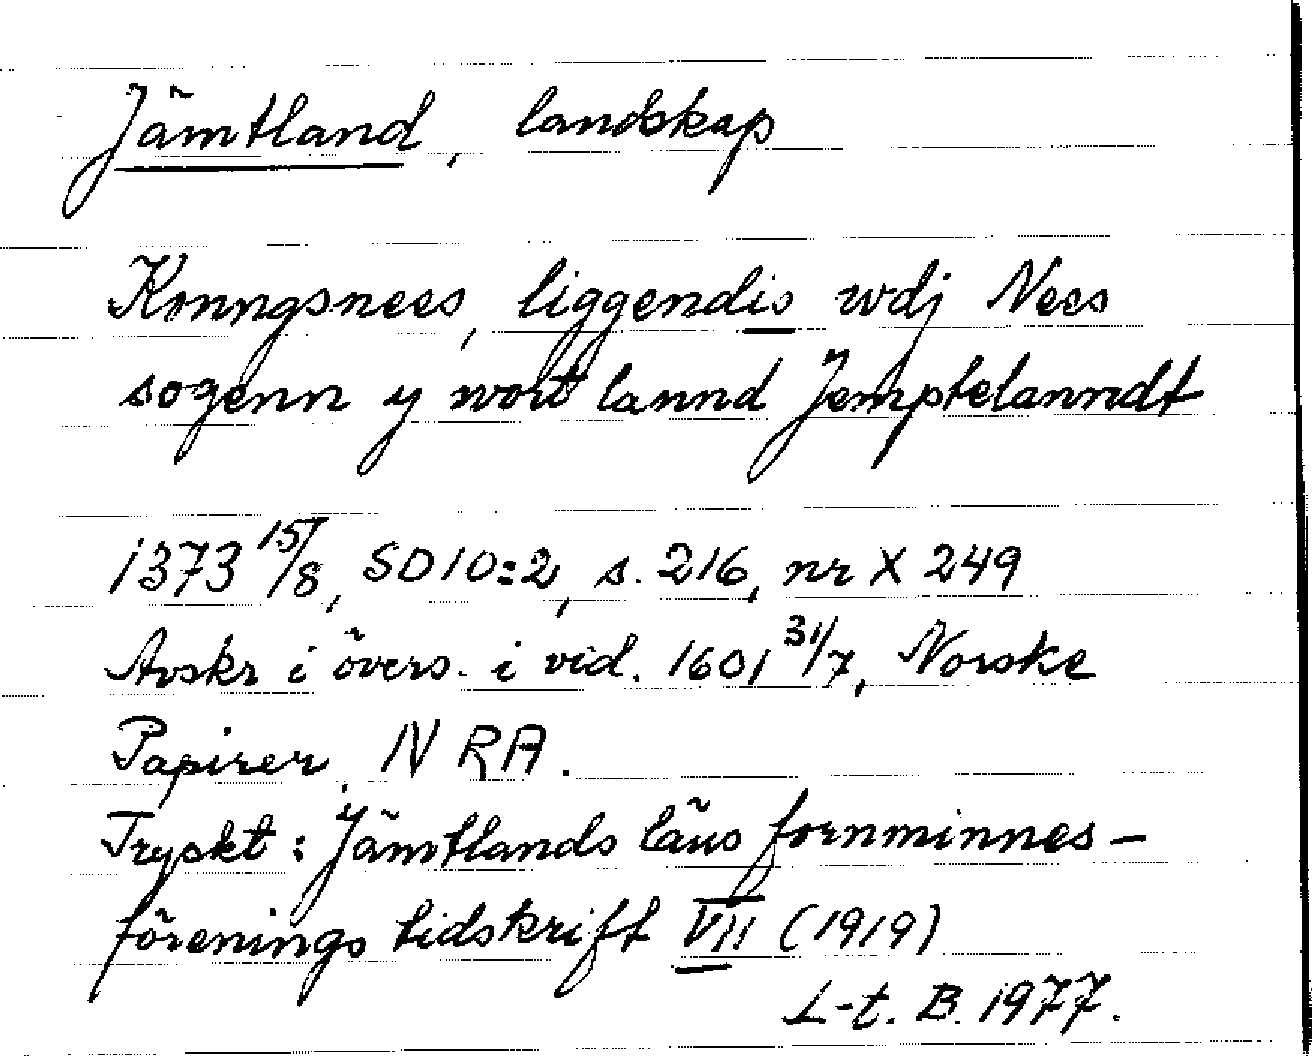 Jämtland, landskap
Konngsnees, liggendis wdj Nees
sogenn y wort lannd Jemptelanndt
1373 15/8, SD 10:2, s. 216, nr X 249
Avskr i övers. i vid. 1601 31/7, Norske
Papirer, N RA.
Tryskt: Jämtlands läns fornminnes-
förenings tidskrift VII (1919)
L-t. B. 1977.